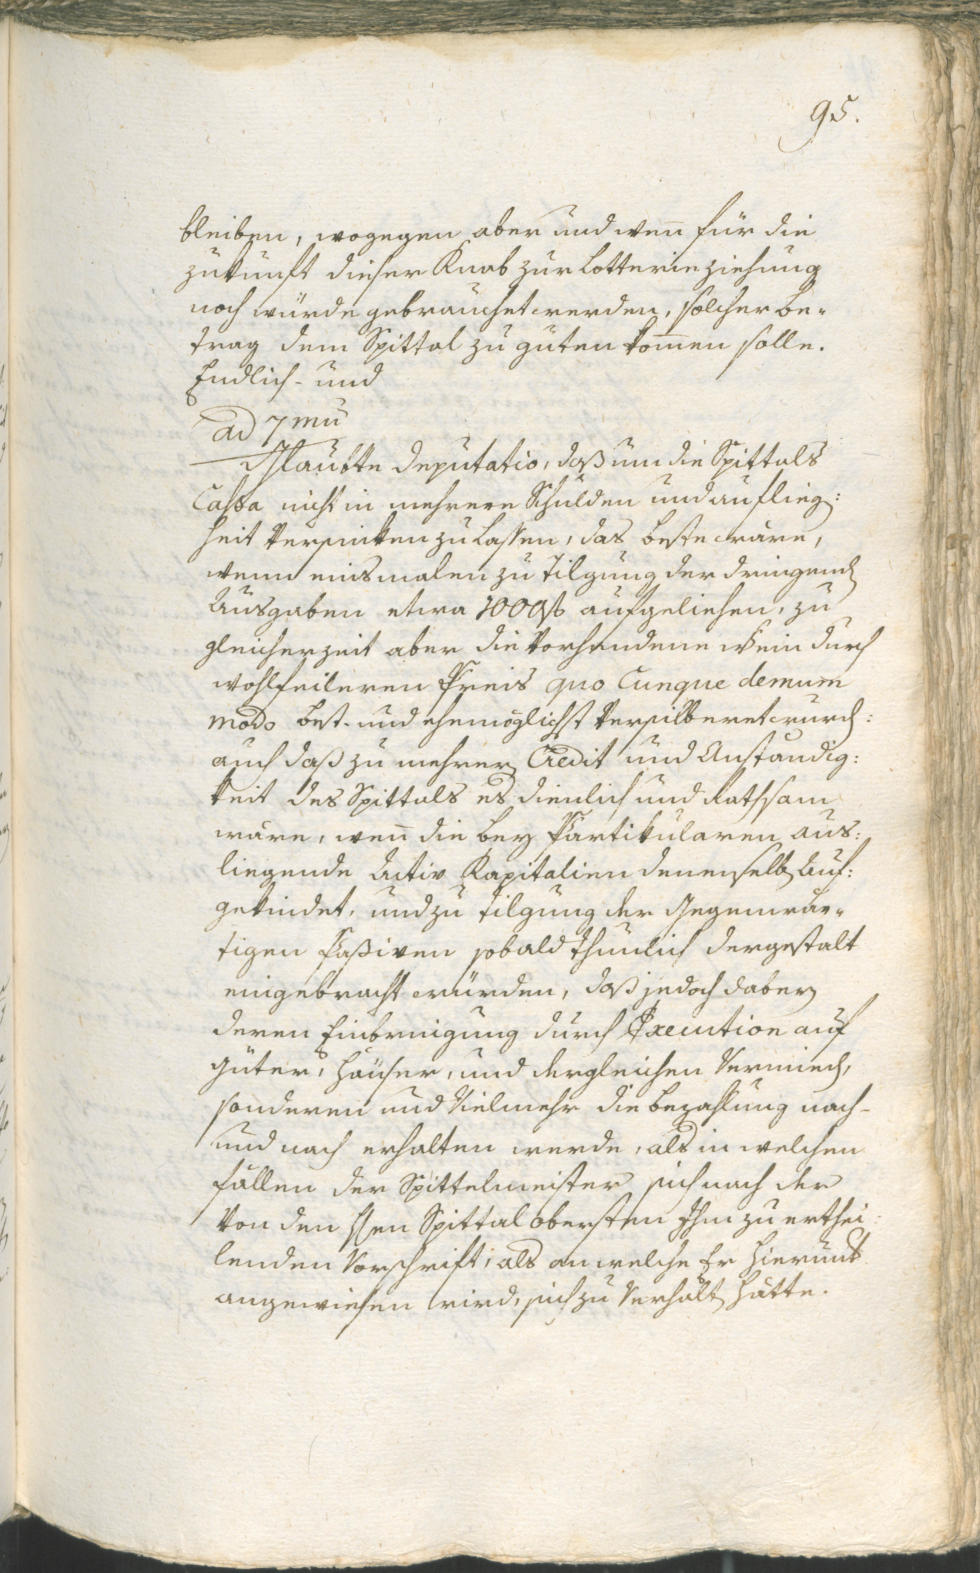 95.
bleiben, wogegen aber und wen̅ für die
zukunft dieser Knab zur Lotterieziehung
noch würde gebrauchet werden, solcher Be-
trag dem Spittal zu guten kom̅en solle.
Endlich- und
ad 7mu
Glaubte Deputatio, daß um die Spittals
Cassa nicht in mehrere Schulden und auflieg:
heit versinken zu lassen, das beste wäre,
wenn einsmalen zu Tilgung der dringend
Ausgaben etwa 1000 f aufgeliehen, zu
gleicher zeit aber die vorhandene Wein durch
wohlfeileren Preis quo Cunque demum
modo best- und ehemöglichst versilberet wurd:
auch daß zu mehrer Credit und Anständig:
keit des Spittals es dienlich und rathsam
wäre, wen̅ die bey Partikularen aus:
liegende Activ Kapitalien denenselb auf:
gekündet, und zu Tilgung der Gegenwär-
tigen Paßiven sobald thunlich dergestalt
eingebracht würden, daß jedoch dabey
deren Einbringung durch Execution auf
Güter, Häuser, und dergleichen vermied,
sonderen und vielmehr die bezahlung nach-
und nach erhalten werde, als in welchen
fällen der Spittelmeister sich nach der
von den Hhen Spittal obersten Ihm zu erthei:
lenden Vorschrift, als an welche Er hierunt
angewiesen wird, sich zu verhalt hätte.